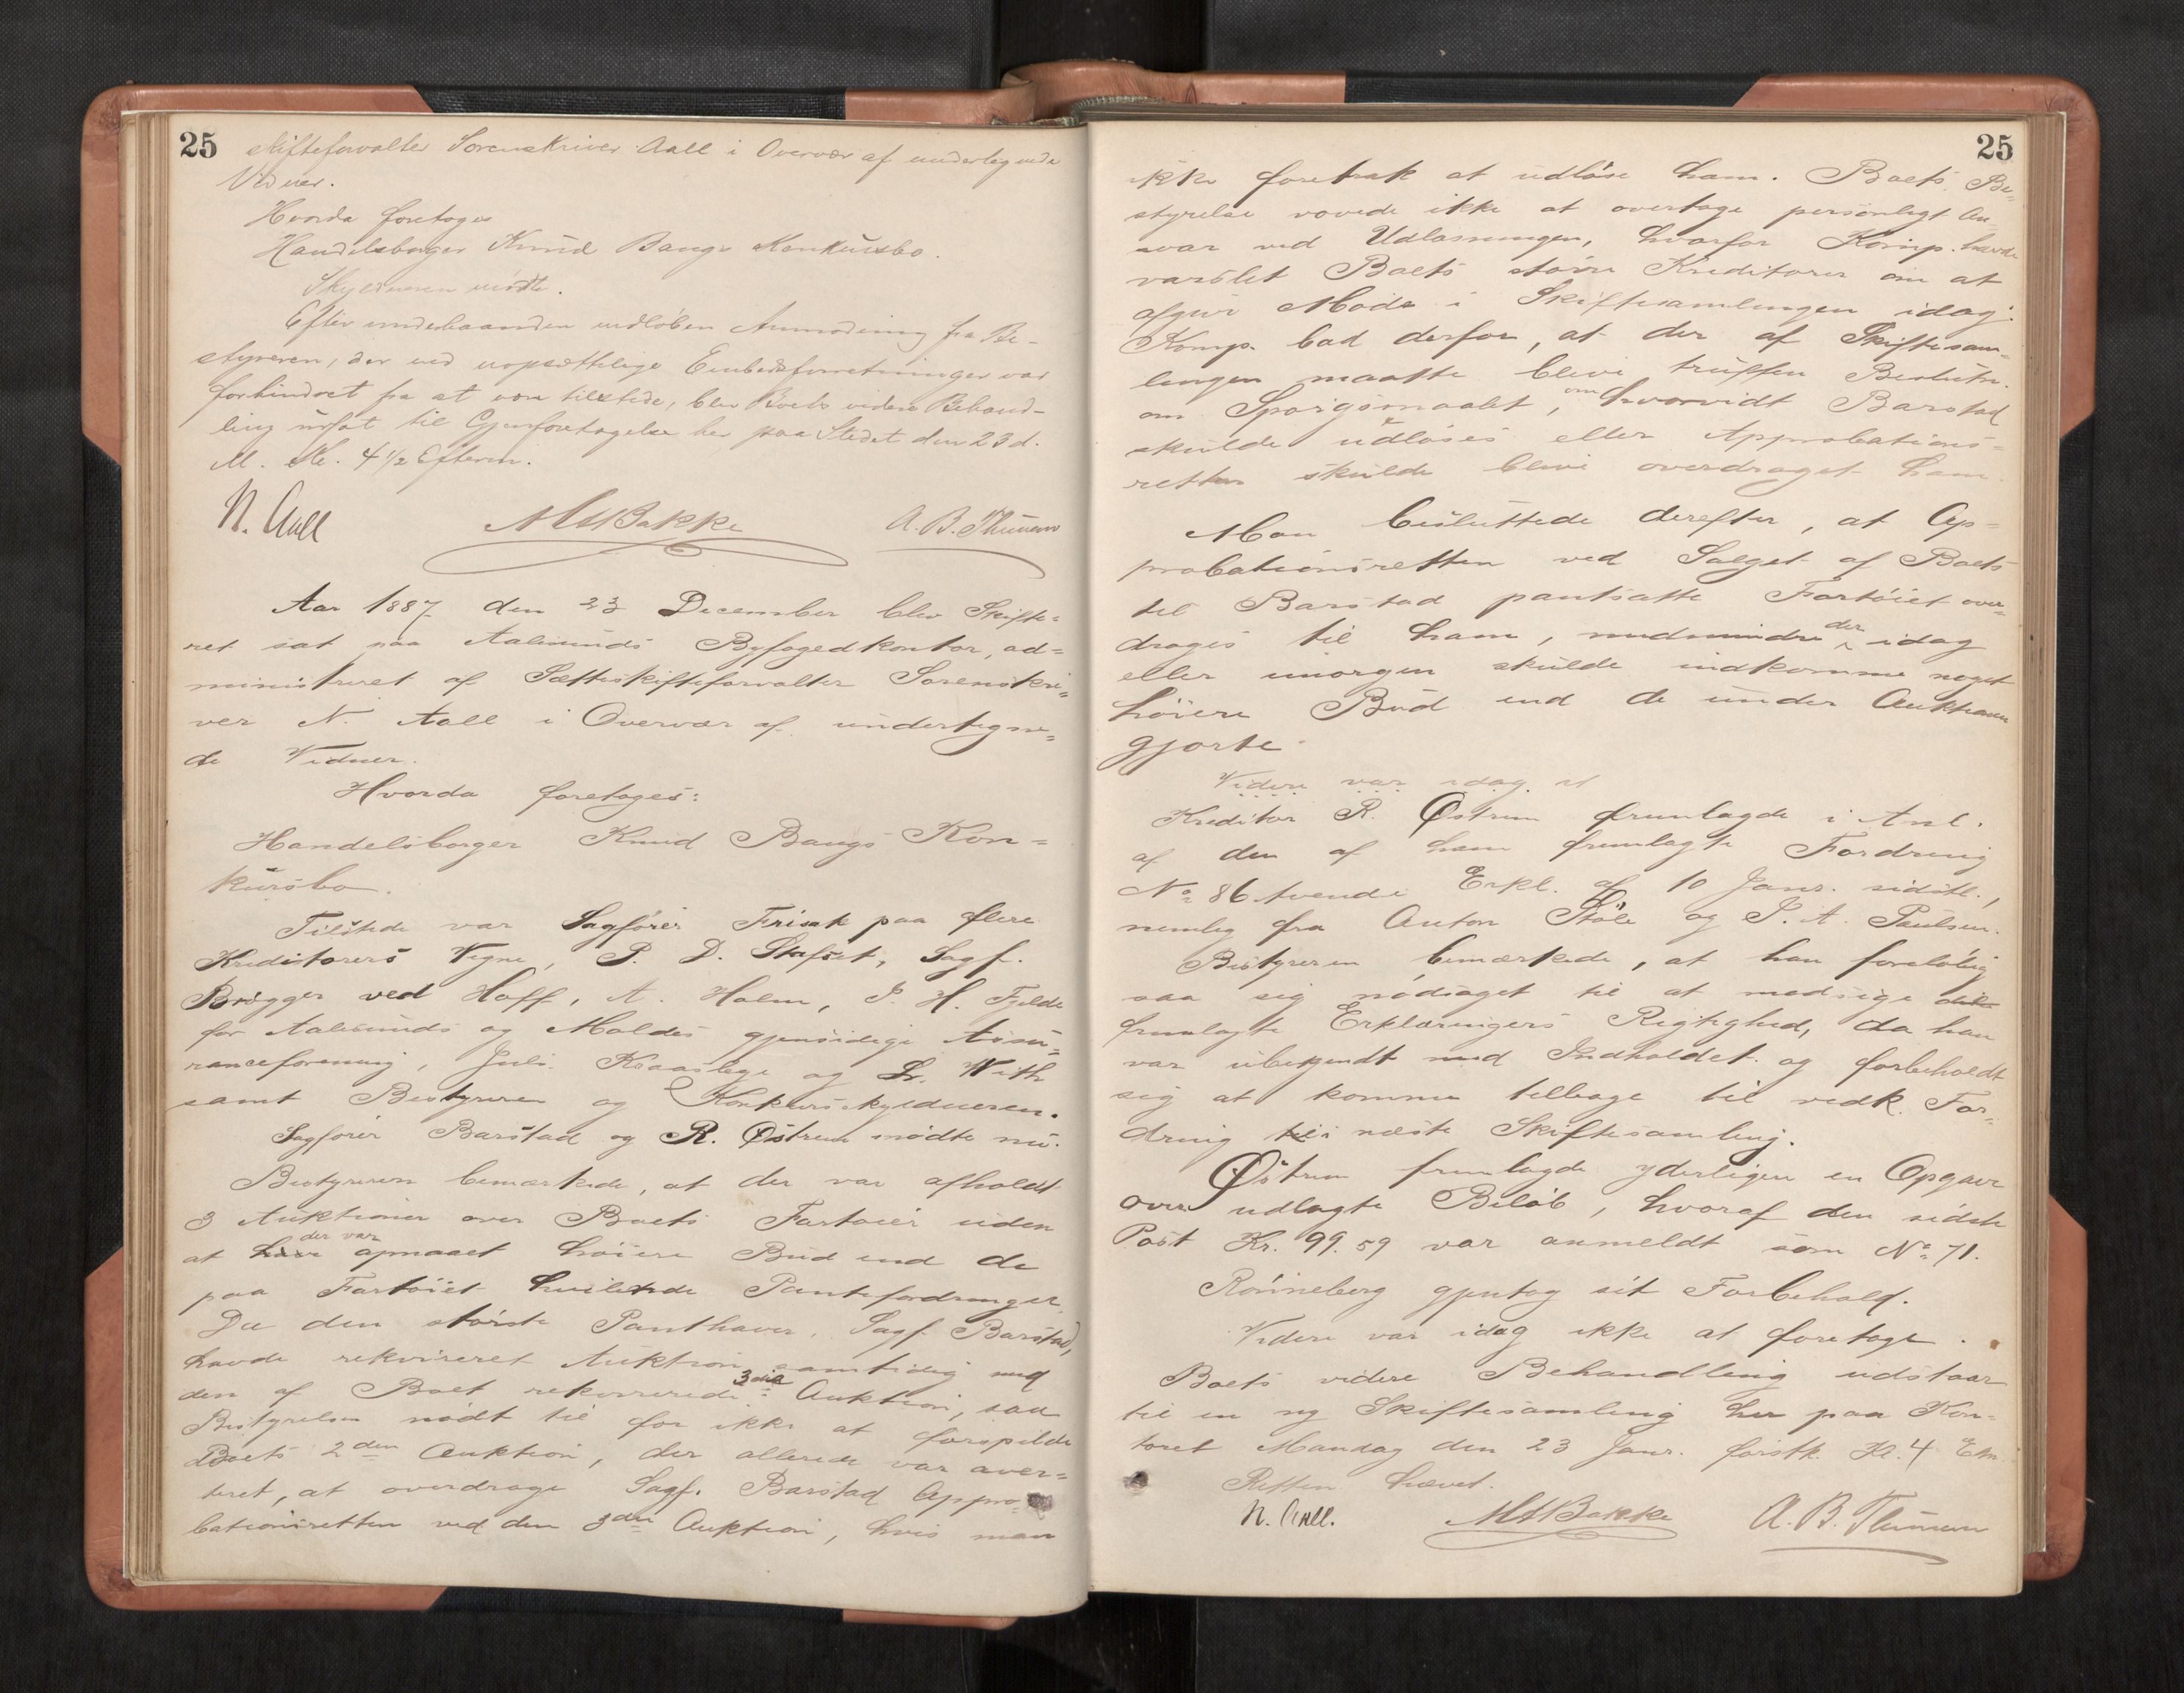 25
Skifteforvalter Sorenskriver Aall i Overvær af undertegnede
Vidner.
Hvorda foretoges
Handelsborger Knud Bangs Konkursbo.
Skyldneren mødte.
Efter underhaanden indløben Anmodning fra Be-
styreren, der ved uopsættelige Embedsforretninger var
forhindret fra at være tilstede, blev Boets videre Behand-
ling udsat til Gjenforetagelse her paa Stedet den 23 d.
M. Kl. 4 1/2 Efterm.
N. Aall M M Bakke A. B. Thunem
Aar 1887 den 23 December blev Skifte-
ret sat paa Aalesunds Byfogedkontor, ad-
ministreret af Sætteskifteforvalter Sorenskri-
ver N. Aall i Overvær af undertegne-
de Vidner.
Hvorda foretoges:
Handelsborger Knud Bangs Kon-
kursbo.
Tilstede var Sagfører Frisak paa flere
Kreditorers Vegne, P. D. Stafset, Sagf.
Brøgger ved Hoff, A. Holm, P. H. Fjelde
for Aalesunds og Moldes gjensidige Assu-
ranceforening, Juls. Kraasbye og Sr. With
samt Bestyreren og Konkursskyldneren.
Sagfører Barstad og R. Østrem mødte nu.
Bestyreren bemærkede, at der var afholdt
3 Auktioner over Boets Fartøier uden
at have der var opnaaet høiere Bud end de
paa Fartøiet hvilende Pantefordringer.
Da den største Panthaver, Sagf. Barstad,
havde rekvireret Auktion samtidig med
den af Boet rekvirerede 3die Auktion, saa
Bestyrelsen nødt til for ikke at forspilde
Boets 2den Auktion, der allerede var aver-
teret, at overdrage Sagf. Barstad Appro-
bationsretten ved den 3die Auktion, hvis man
25
ikke foretrak at udløse ham. Boets Be-
styrelse vovede ikke at overtage personligt An-
svar ved Udløsningen, hvorfor Komp. havde
varslet Boets større Kreditorer om at
afgive Møde i Skiftesamlingen idag.
Komp. bad derfor, at der af Skiftesam-
lingen maatte blive truffen Beslutn.
om Spørgsmaalet, om hvorvidt Barstad
skulde udløses eller Approbations-
retten skulde blive overdraget ham.
Man besluttede derefter, at Ap-
probationsretten ved Salget af Boets
til Barstad pantsatte Fartøiet over-
drages til ham, medmindre der idag
eller imorgen skulde indkomme noget
høiere Bud end de under Auktionen
gjorte.
Videre var idag at
Kreditor R. Østrem fremlagde i Anl.
af den af ham fremlagte Fordring
No 86 tvende Erkl. af 10 Janr. sidstl.,
nemlig fra Anton Støle og P. A. Paulsen.
Bestyreren bemærkede, at han foreløbig
saa sig nødsaget til at modsige de
fremlagte Erklæringers Rigtighed, da han
var ubekjendt med Indholdet og forbeholdt
sig at komme tilbage til vedk. For-
dring til i næste Skiftesamling.
Østrem fremlagde yderligere en Opgave
over udlagte Beløb, hvoraf den sidste
Post Kr. 99.59 var anmeldt som No 71.
Rønneberg gjentog sit Forbehold.
Videre var idag ikke at foretage.
Boets videre Behandling udstaar
til en ny Skiftesamling her paa Kon-
toret Mandag den 23 Janr. førstk. Kl. 4 Em.
Retten hævet.
N. Aall. M M Bakke A. B. Thunem